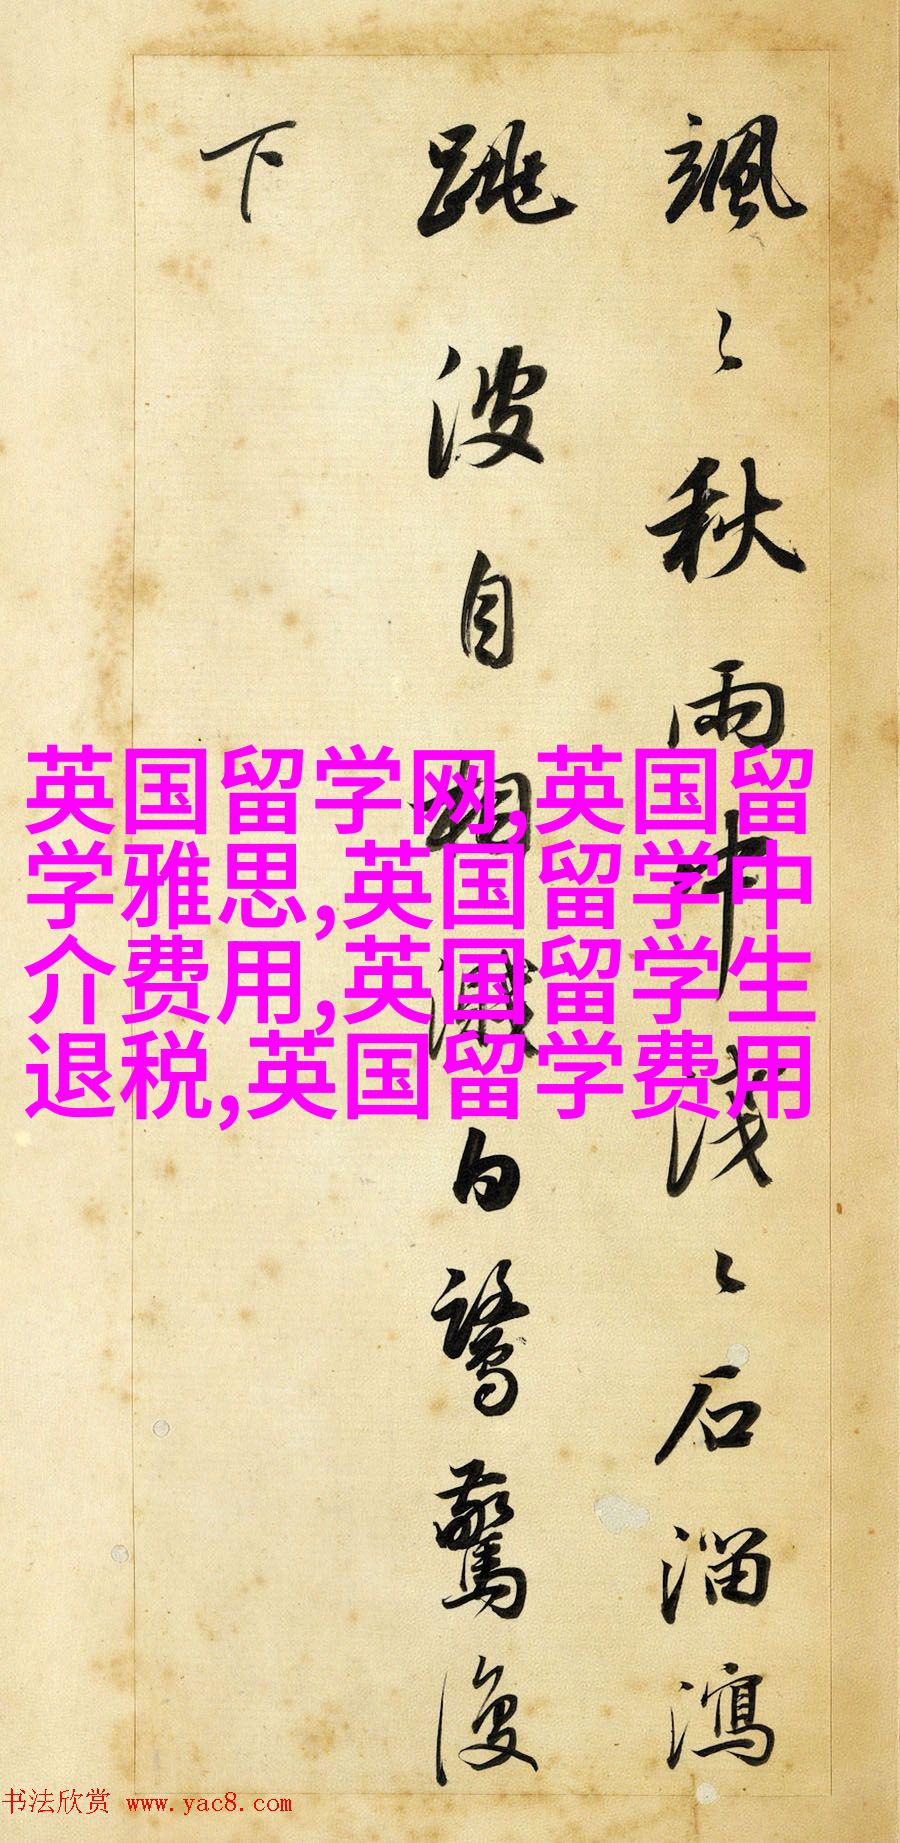 颯〻秋雨中淺〻石溜瀉
跳波自相濺白鷺驚復
下
英国留学网,英国留
学雅思,英国留学中
介费用,英国留学生
退税,英国留学费用
书法欣赏 www.yac8.com